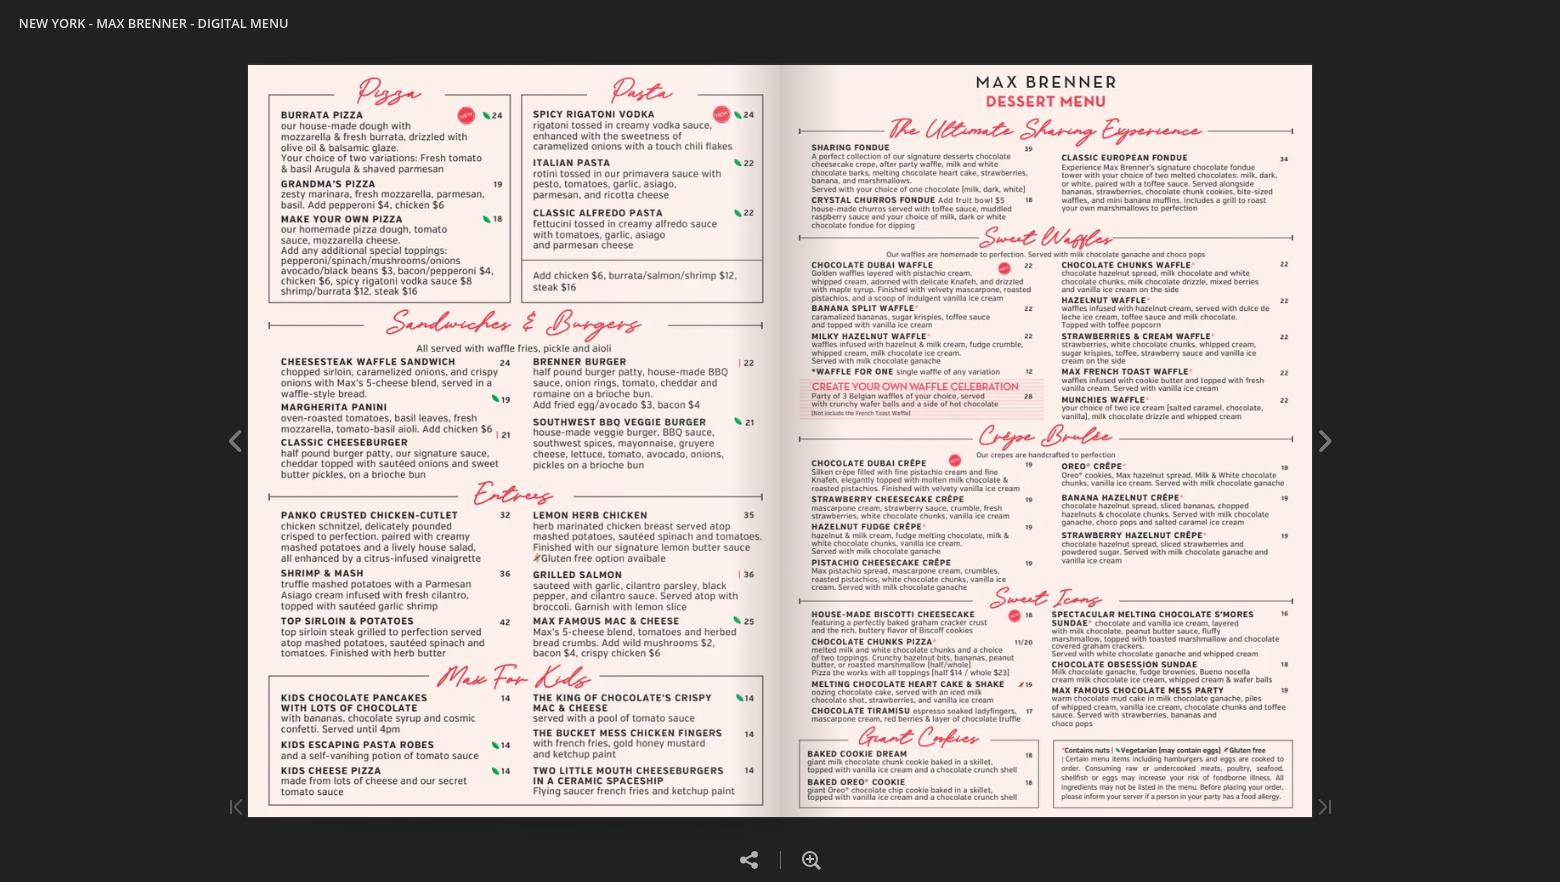 NEW YORK - MAX BRENNER - DIGITAL MENU
Pizza
BURRATA PIZZA NEW 24
our house-made dough with
mozzarella & fresh burrata, drizzled with
olive oil & balsamic glaze.
Your choice of two variations: Fresh tomato
& basil Arugula & shaved parmesan
GRANDMA'S PIZZA 19
zesty marinara, fresh mozzarella, parmesan,
basil. Add pepperoni $4, chicken $6
MAKE YOUR OWN PIZZA 18
our homemade pizza dough, tomato
sauce, mozzarella cheese.
Add any additional special toppings:
pepperoni/spinach/mushrooms/onions
avocado/black beans $3, bacon/pepperoni $4,
chicken $6, spicy rigatoni vodka sauce $8
shrimp/burrata $12, steak $16
Pasta
SPICY RIGATONI VODKA NEW 24
rigatoni tossed in creamy vodka sauce,
enhanced with the sweetness of
caramelized onions with a touch chili flakes
ITALIAN PASTA 22
rotini tossed in our primavera sauce with
pesto, tomatoes, garlic, asiago,
parmesan, and ricotta cheese
CLASSIC ALFREDO PASTA 22
fettucini tossed in creamy alfredo sauce
with tomatoes, garlic, asiago
and parmesan cheese
Add chicken $6, burrata/salmon/shrimp $12,
steak $16
Sandwiches & Burgers
All served with waffle fries, pickle and aioli
CHEESESTEAK WAFFLE SANDWICH 24
chopped sirloin, caramelized onions, and crispy
onions with Max's 5-cheese blend, served in a
waffle-style bread.
MARGHERITA PANINI 19
oven-roasted tomatoes, basil leaves, fresh
mozzarella, tomato-basil aioli. Add chicken $6
CLASSIC CHEESEBURGER | 21
half pound burger patty, our signature sauce,
cheddar topped with sautéed onions and sweet
butter pickles, on a brioche bun
BRENNER BURGER | 22
half pound burger patty, house-made BBQ
sauce, onion rings, tomato, cheddar and
romaine on a brioche bun.
Add fried egg/avocado $3, bacon $4
SOUTHWEST BBQ VEGGIE BURGER 21
house-made veggie burger, BBQ sauce,
southwest spices, mayonnaise, gruyere
cheese, lettuce, tomato, avocado, onions,
pickles on a brioche bun
Entrees
PANKO CRUSTED CHICKEN-CUTLET 32
chicken schnitzel, delicately pounded
crisped to perfection. paired with creamy
mashed potatoes and a lively house salad,
all enhanced by a citrus-infused vinaigrette
SHRIMP & MASH 36
truffle mashed potatoes with a Parmesan
Asiago cream infused with fresh cilantro,
topped with sautéed garlic shrimp
TOP SIRLOIN & POTATOES 42
top sirloin steak grilled to perfection served
atop mashed potatoes, sautéed spinach and
tomatoes. Finished with herb butter
LEMON HERB CHICKEN 35
herb marinated chicken breast served atop
mashed potatoes, sautéed spinach and tomatoes.
Finished with our signature lemon butter sauce
Gluten free option avaibale
GRILLED SALMON | 36
sauteed with garlic, cilantro parsley, black
pepper, and cilantro sauce. Served atop with
broccoli. Garnish with lemon slice
MAX FAMOUS MAC & CHEESE 25
Max's 5-cheese blend, tomatoes and herbed
bread crumbs. Add wild mushrooms $2,
bacon $4, crispy chicken $6
Max For Kids
KIDS CHOCOLATE PANCAKES 14
WITH LOTS OF CHOCOLATE
with bananas, chocolate syrup and cosmic
confetti. Served until 4pm
KIDS ESCAPING PASTA ROBES 14
and a self-vanihing potion of tomato sauce
KIDS CHEESE PIZZA 14
made from lots of cheese and our secret
tomato sauce
THE KING OF CHOCOLATE'S CRISPY 14
MAC & CHEESE
served with a pool of tomato sauce
THE BUCKET MESS CHICKEN FINGERS 14
with french fries, gold honey mustard
and ketchup paint
TWO LITTLE MOUTH CHEESEBURGERS 14
IN A CERAMIC SPACESHIP
Flying saucer french fries and ketchup paint
MAX BRENNER
DESSERT MENU
The Ultimate Sharing Experience
SHARING FONDUE 39
A perfect collection of our signature desserts chocolate
cheesecake crepe, after party waffle, milk and white
chocolate barks, melting chocolate heart cake, strawberries,
banana, and marshmallows.
Served with your choice of one chocolate [milk, dark, white]
CRYSTAL CHURROS FONDUE Add fruit bowl $5 18
house-made churros served with toffee sauce, muddled
raspberry sauce and your choice of milk, dark or white
chocolate fondue for dipping
CLASSIC EUROPEAN FONDUE 34
Experience Max Brenner's signature chocolate fondue
tower with your choice of two melted chocolates: milk, dark,
or white, paired with a toffee sauce. Served alongside
bananas, strawberries, chocolate chunk cookies, bite-sized
waffles, and mini banana muffins. Includes a grill to roast
your own marshmallows to perfection
Sweet Waffles
Our waffles are homemade to perfection. Served with milk chocolate ganache and choco pops
CHOCOLATE DUBAI WAFFLE NEW 22
Golden waffles layered with pistachio cream,
whipped cream, adorned with delicate Knafeh, and drizzled
with maple syrup. Finished with velvety mascarpone, roasted
pistachios, and a scoop of indulgent vanilla ice cream
BANANA SPLIT WAFFLE* 22
caramalized bananas, sugar krispies, toffee sauce
and topped with vanilla ice cream
MILKY HAZELNUT WAFFLE* 22
waffles infused with hazelnut & milk cream, fudge crumble,
whipped cream, milk chocolate ice cream.
Served with milk chocolate ganache
*WAFFLE FOR ONE single waffle of any variation 12
CREATE YOUR OWN WAFFLE CELEBRATION
Party of 3 Belgian waffles of your choice, served 28
with crunchy wafer balls and a side of hot chocolate
[Not include the French Toast Waffle]
CHOCOLATE CHUNKS WAFFLE* 22
chocolate hazelnut spread, milk chocolate and white
chocolate chunks, milk chocolate drizzle, mixed berries
and vanilla ice cream on the side
HAZELNUT WAFFLE* 22
waffles infused with hazelnut cream, served with dulce de
leche ice cream, toffee sauce and milk chocolate.
Topped with toffee popcorn
STRAWBERRIES & CREAM WAFFLE* 22
strawberries, white chocolate chunks, whipped cream,
sugar krispies, toffee, strawberry sauce and vanilla ice
cream on the side
MAX FRENCH TOAST WAFFLE* 22
waffles infused with cookie butter and topped with fresh
vanilla cream. Served with vanilla ice cream
MUNCHIES WAFFLE* 22
your choice of two ice cream [salted caramel, chocolate,
vanilla], milk chocolate drizzle and whipped cream
Crêpe Brulée
Our crepes are handcrafted to perfection
CHOCOLATE DUBAI CRÊPE NEW 19
Silken crêpe filled with fine pistachio cream and fine
Knafeh, elegantly topped with molten milk chocolate &
roasted pistachios. Finished with velvety vanilla ice cream
STRAWBERRY CHEESECAKE CRÊPE 19
mascarpone cream, strawberry sauce, crumble, fresh
strawberries, white chocolate chunks, vanilla ice cream
HAZELNUT FUDGE CRÊPE* 19
hazelnut & milk cream, fudge melting chocolate, milk &
white chocolate chunks, vanilla ice cream.
Served with milk chocolate ganache
PISTACHIO CHEESECAKE CRÊPE 19
Max pistachio spread, mascarpone cream, crumbles,
roasted pistachios, white chocolate chunks, vanilla ice
cream. Served with milk chocolate ganache
OREO® CRÊPE* 19
Oreo® cookies, Max hazelnut spread, Milk & White chocolate
chunks, vanilla ice cream. Served with milk chocolate ganache
BANANA HAZELNUT CRÊPE* 19
chocolate hazelnut spread, sliced bananas, chopped
hazelnuts & chocolate chunks. Served with milk chocolate
ganache, choco pops and salted caramel ice cream
STRAWBERRY HAZELNUT CRÊPE* 19
chocolate hazelnut spread, sliced strawberries and
powdered sugar. Served with milk chocolate ganache and
vanilla ice cream
Sweet Icons
HOUSE-MADE BISCOTTI CHEESECAKE NEW 18
featuring a perfectly baked graham cracker crust
and the rich, buttery flavor of Biscoff cookies
CHOCOLATE CHUNKS PIZZA* 11/20
melted milk and white chocolate chunks and a choice
of two toppings. Crunchy hazelnut bits, bananas, peanut
butter, or roasted marshmallow [half/whole]
Pizza the works with all toppings [half $14 / whole $23]
MELTING CHOCOLATE HEART CAKE & SHAKE 19
oozing chocolate cake, served with an iced milk
chocolate shot, strawberries, and vanilla ice cream
CHOCOLATE TIRAMISU espresso soaked ladyfingers, 17
mascarpone cream, red berries & layer of chocolate truffle
SPECTACULAR MELTING CHOCOLATE S'MORES 16
SUNDAE* chocolate and vanilla ice cream, layered
with milk chocolate, peanut butter sauce, fluffy
marshmallow, topped with toasted marshmallow and chocolate
covered graham crackers.
Served with white chocolate ganache and whipped cream
CHOCOLATE OBSESSION SUNDAE 18
Milk chocolate ganache, fudge brownies, Bueno nocella
cream milk chocolate ice cream, whipped cream & wafer balls
MAX FAMOUS CHOCOLATE MESS PARTY 19
warm chocolate mud cake in milk chocolate ganache, piles
of whipped cream, vanilla ice cream, chocolate chunks and toffee
sauce. Served with strawberries, bananas and
choco pops
Giant Cookies
BAKED COOKIE DREAM 18
giant milk chocolate chunk cookie baked in a skillet,
topped with vanilla ice cream and a chocolate crunch shell
BAKED OREO® COOKIE 18
giant Oreo® chocolate chip cookie baked in a skillet,
topped with vanilla ice cream and a chocolate crunch shell
*Contains nuts | Vegetarian [may contain eggs] Gluten free
| Certain menu items including hamburgers and eggs are cooked to
order. Consuming raw or undercooked meats, poultry, seafood,
shellfish or eggs may increase your risk of foodborne illness. All
ingredients may not be listed in the menu. Before placing your order,
please inform your server if a person in your party has a food allergy.